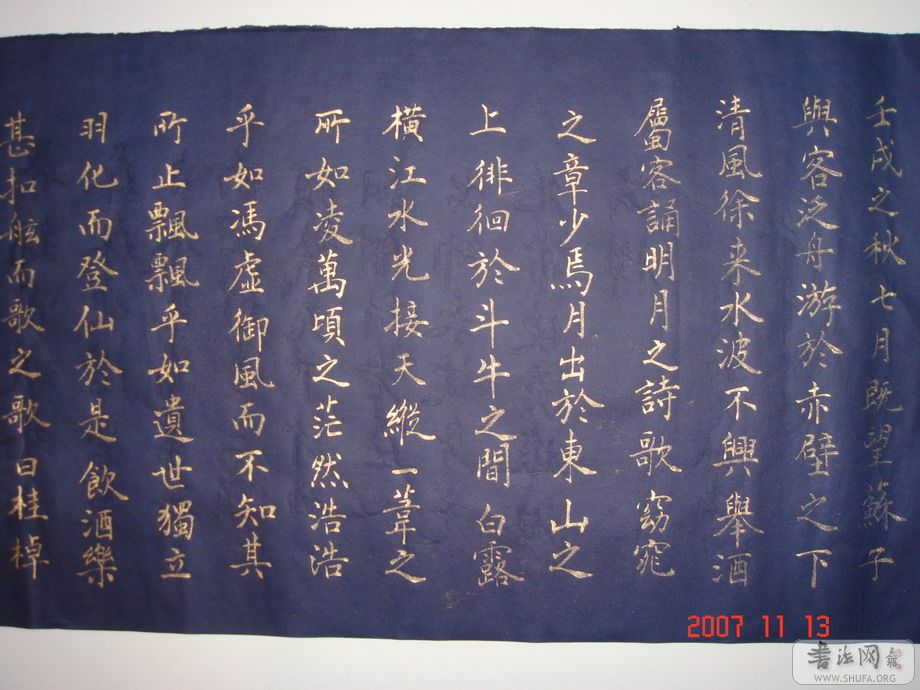 壬戌之秋七月既望蘇子
與客泛舟游於赤壁之下
清風徐来水波不興舉酒
屬客誦明月之詩歌窈窕
之章少焉月出於東山之
上徘徊於斗牛之間白露
橫江水光接天縱一葦之
所如凌萬頃之茫然浩浩
乎如馮虛御風而不知其
所止飄飄乎如遺世獨立
羽化而登仙於是飲酒樂
甚扣舷而歌之歌曰桂棹
2007 11 13
書法网
WWW.SHUFA.ORG